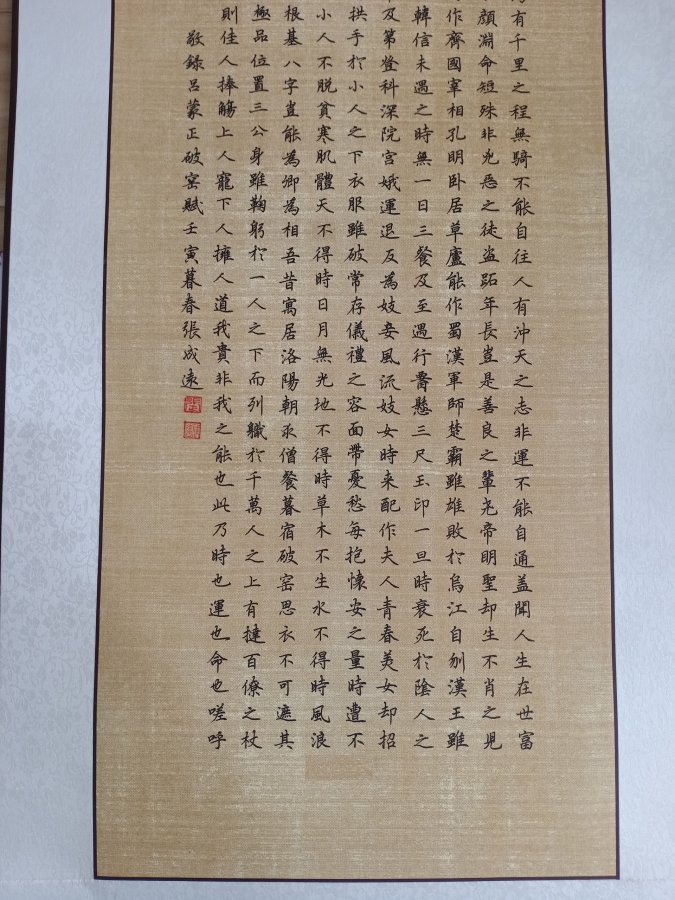 有千里之程無騎不能自往人有沖天之志非運不能自通蓋聞人生在世富
顏淵命短殊非兇惡之徒盜跖年長豈是善良之輩堯帝明聖却生不肖之兒
作齊國宰相孔明卧居草廬能作蜀漢軍師楚霸雖雄敗於烏江自刎漢王雖
韓信未遇之時無一日三餐及至遇行腰懸三尺玉印一旦時衰死於陰人之
及第登科深院宮娥運退反為妓妾風流妓女時來配作夫人青春美女却招
拱手於小人之下衣服雖破常存儀禮之容面帶憂愁每抱懷安之量時遭不
小人不脫貧寒肌體天不得時日月無光地不得時草木不生水不得時風浪
根基八字豈能為卿為相吾昔寓居洛陽朝求僧餐暮宿破窑思衣不可遮其
極品位置三公身雖鞠躬於一人之下而列職於千萬人之上有撻百僚之杖
則佳人捧觴上人寵下人擁人道我貴非我之能也此乃時也運也命也嗟呼
敬錄呂蒙正破窑賦壬寅暮春張成遠